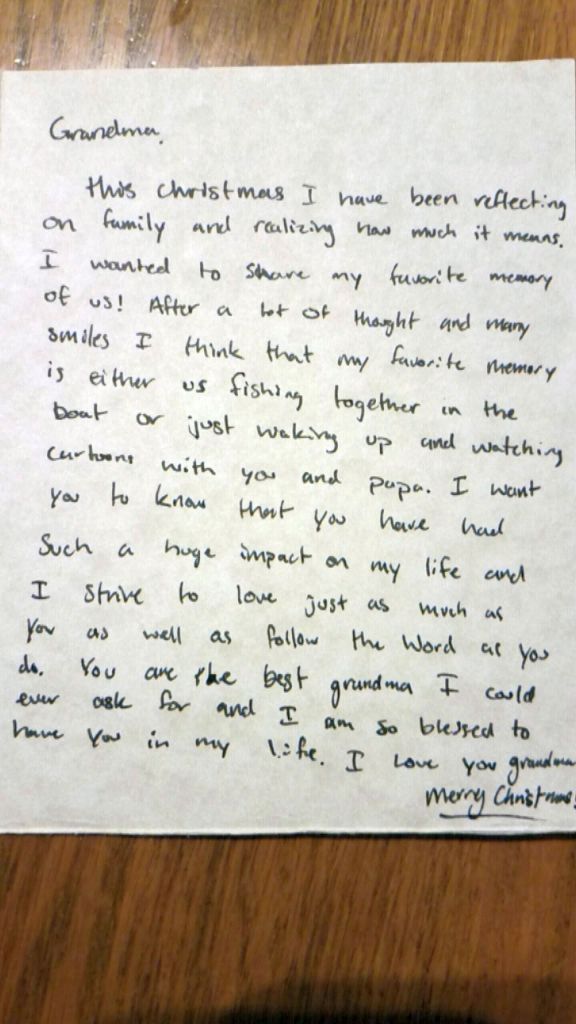 Grandma,
This Christmas I have been reflecting
on family and realizing how much it means.
I wanted to share my favorite memory
of us! After a lot of thought and many
smiles I think that my favorite memory
is either us fishing together in the
boat or just waking up and watching
cartoons with you and papa. I want
you to know that you have had
such a huge impact on my life and
I strive to love just as much as
you as well as follow the Word as you
do. You are the best grandma I could
ever ask for and I am so blessed to
have you in my life. I love you grandma
Merry Christmas!